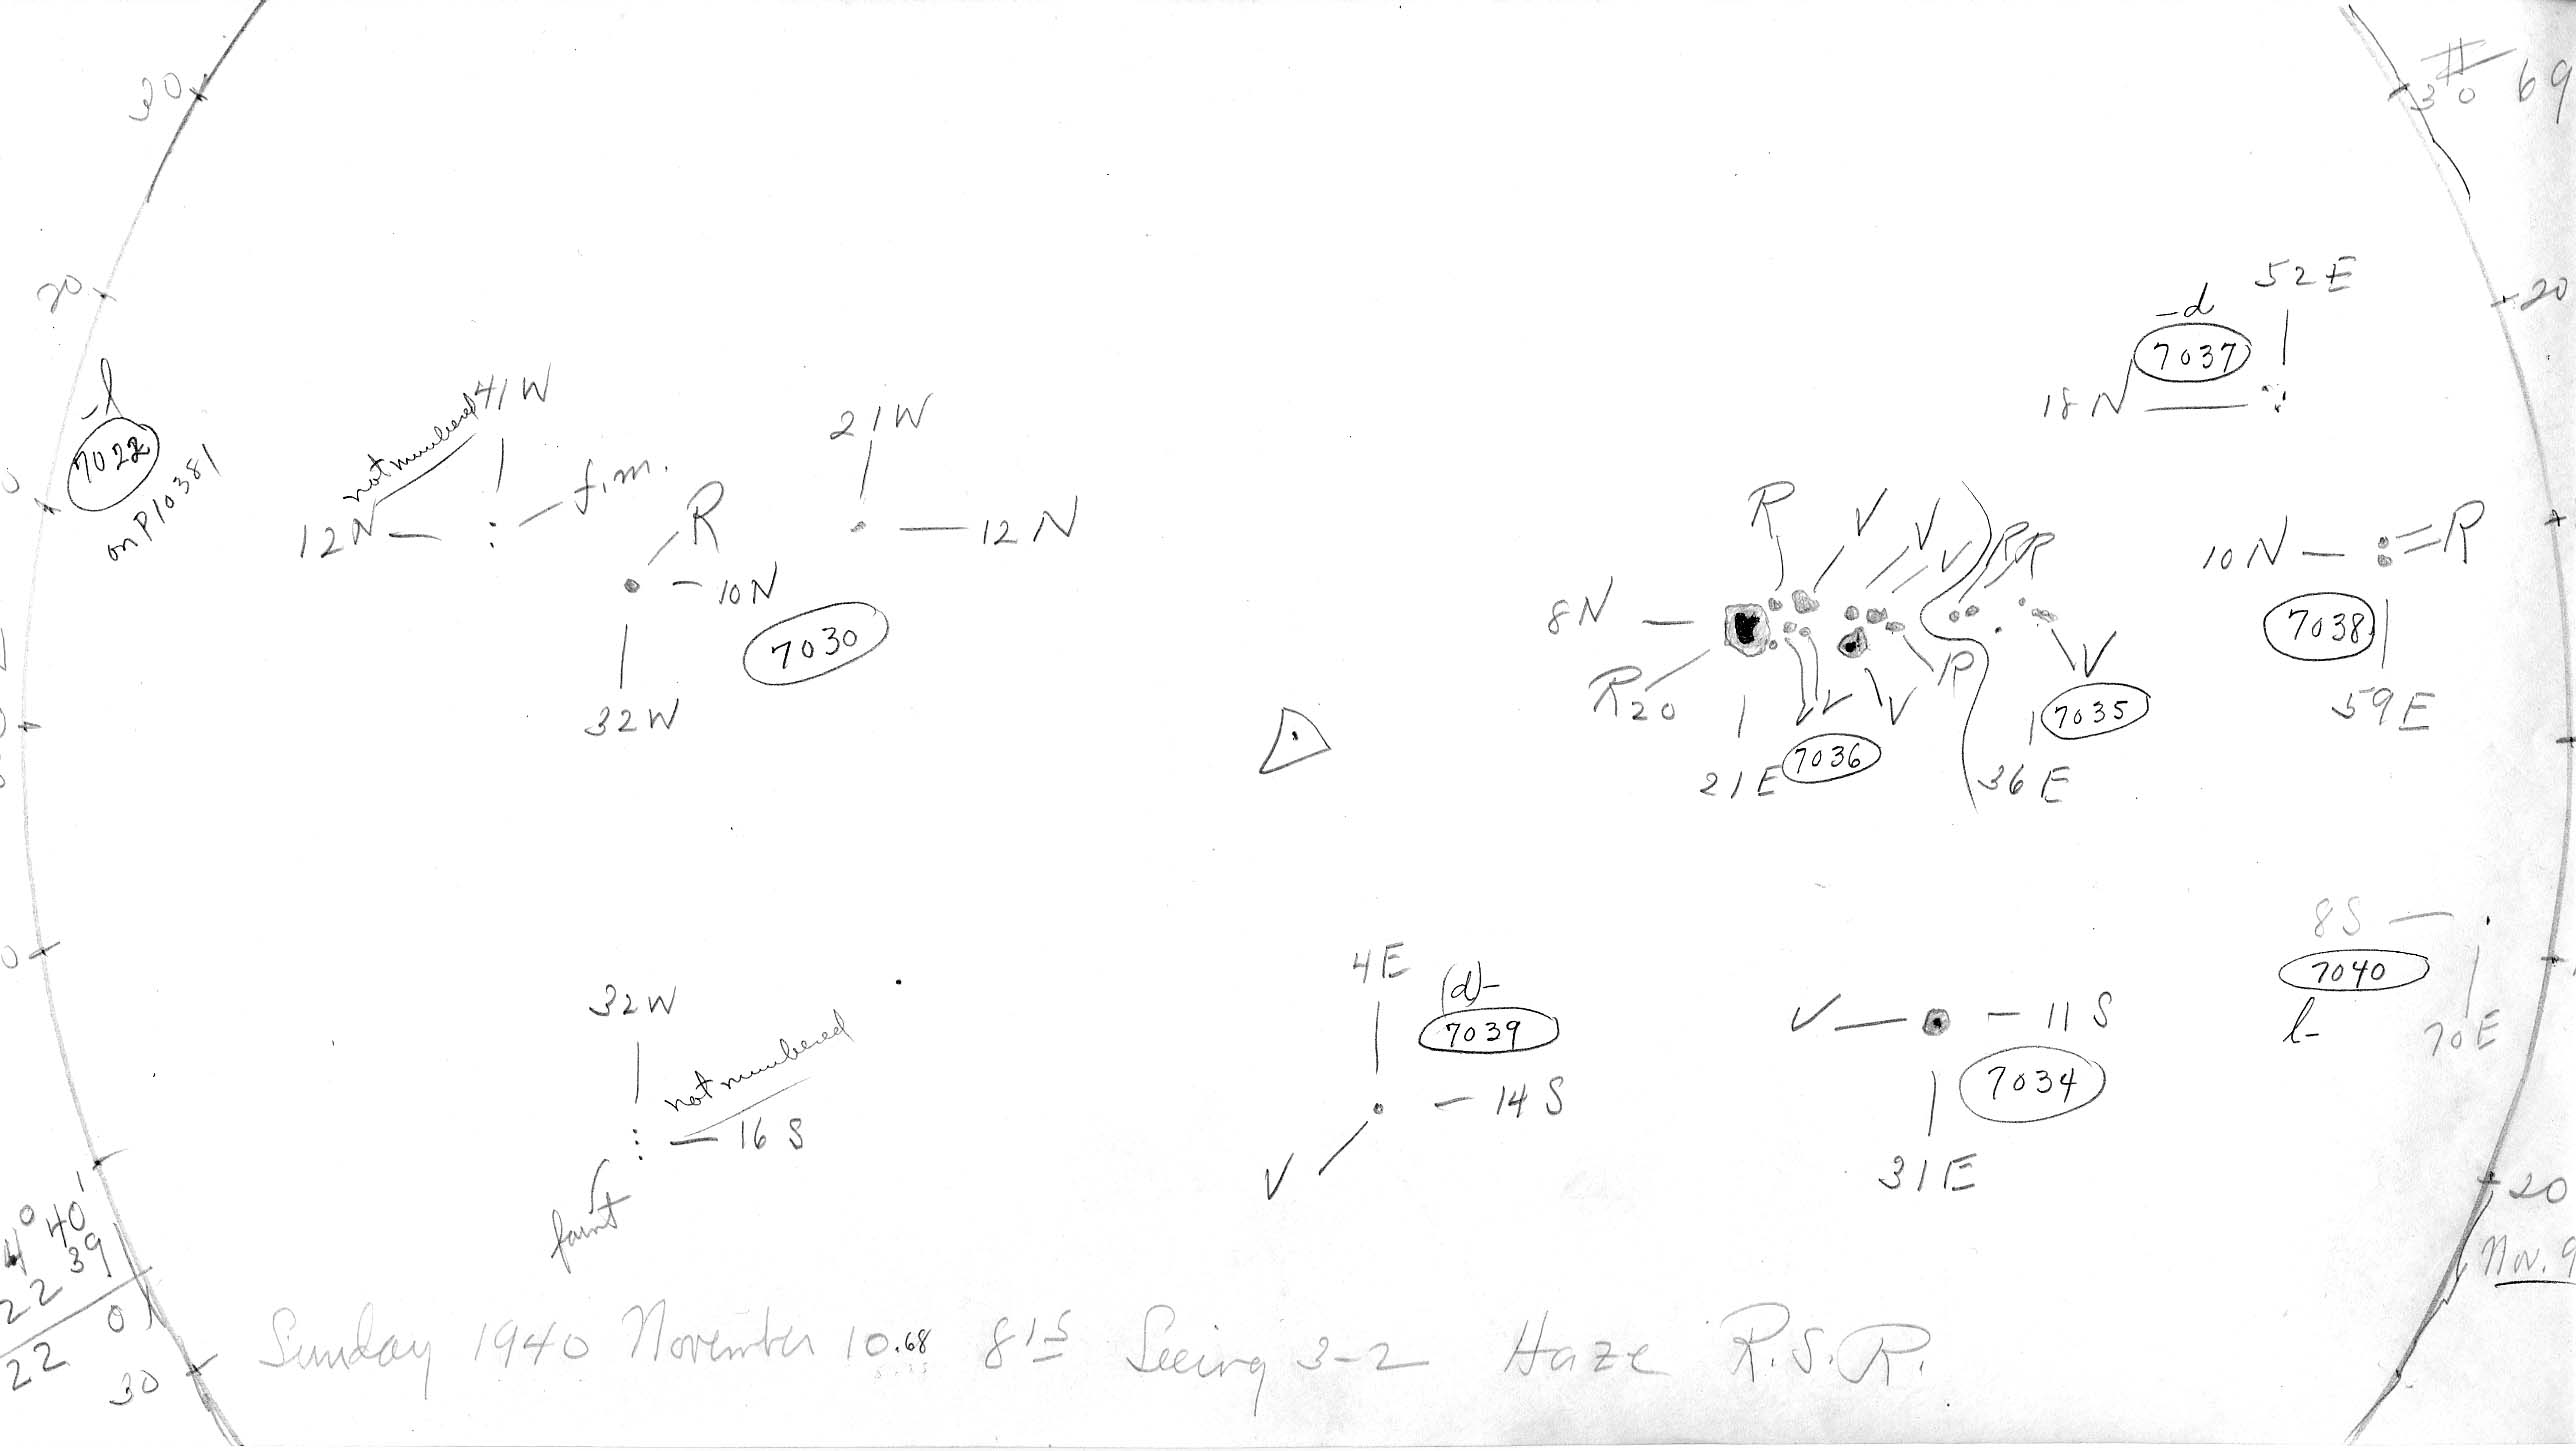 30
# 69
30
20
52E
20
-d
7037
18N
-l
7022
on P10381
not numbered
41W
12N
f.m.
21W
12N
R
10N
7030
32W
R
V
V
V
R
R
8N
R20
V
V
V
R
V
21E
7036
36E
7035
10N
R
7038
59E
0
32W
not numbered
16 S
faint
4E
(d)-
7039
14 S
V
V
11 S
7034
31E
8S
7040
l-
70E
20
Nov. 9
4° 40'
22 39
22 01
30
Sunday 1940 November 10.68 8 15 Seeing 3-2 Haze R.S.R.